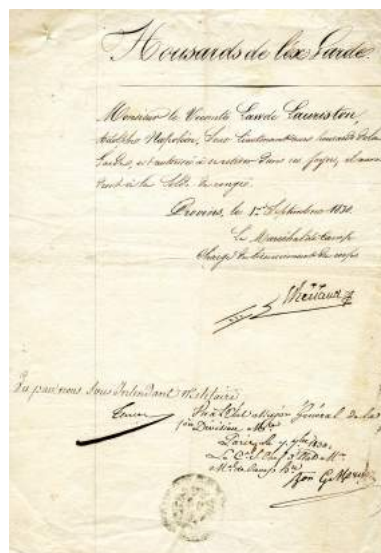 Housards de l'ex Garde.
Monsieur le Vicomte Law de Lauriston,
Adolphe Napoléon, Sous Lieutenant aux housards de la
Garde, est autorisé à se retirer dans ses foyers, et aura
droit à la Solde de congé.
Provins, le 1er Septembre 1830.
Le Maréchal de Camp
Chargé du licenciement du corps
Vu par nous Sous Intendant Militaire
Vu à l'Etat Major Général de la
1ère Division Mre
Paris, le 7 7bre 1830.
Le Cel Chef d'
Mal de Camp